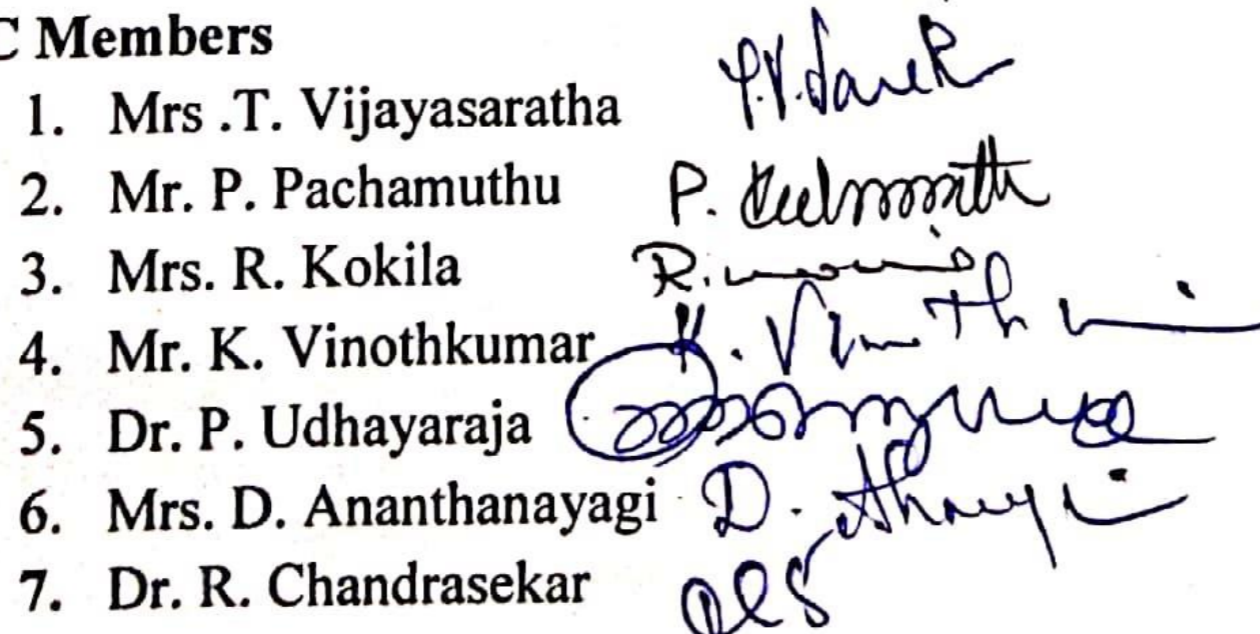 C Members
1. Mrs .T. Vijayasaratha
2. Mr. P. Pachamuthu P.
3. Mrs. R. Kokila R.
4. Mr. K. Vinothkumar K.
5. Dr. P. Udhayaraja
6. Mrs. D. Ananthanayagi D.
7. Dr. R. Chandrasekar